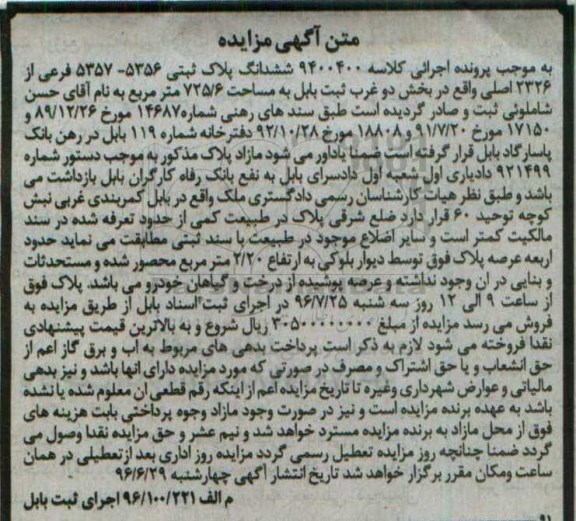 متن آگهی مزایده
به موجب پرونده اجرائی کلاسه ۹۴۰۰۴۰۰ ششدانگ پلاک ثبتی ۵۳۵۶- ۵۳۵۷ فرعی از
۲۳۲۶ اصلی واقع در بخش دو غرب ثبت بابل به مساحت ۷۲۵/۶ متر مربع به نام آقای حسن
شاملوئی ثبت و صادر گردیده است طبق سند های رهنی شماره۱۴۶۸۷ مورخ ۸۹/۱۲/۲۶ و
۱۷۱۵۰ مورخ ۹۱/۷/۲۰ و ۱۸۸۰۸ مورخ ۹۲/۱۰/۲۸ دفترخانه شماره ۱۱۹ بابل در رهن بانک
پاسارگاد بابل قرار گرفته است ضمنا یاداور می شود مازاد پلاک مذکور به موجب دستور شماره
۹۲۱۴۹۹ دادیاری اول شعبه اول دادسرای بابل به نفع بانک رفاه کارگران بابل بازداشت می
باشد و طبق نظر هیات کارشناسان رسمی دادگستری ملک واقع در بابل کمربندی غربی نبش
کوچه توحید ۶۰ قرار دارد ضلع شرقی پلاک در طبیعت کمی از حدود تعرفه شده در سند
مالکیت کمتر است و سایر اضلاع موجود در طبیعت با سند ثبتی مطابقت می نماید حدود
اربعه عرصه پلاک فوق توسط دیوار بلوکی به ارتفاع ۲/۲۰ متر مربع محصور شده و مستحدثات
و بنایی در ان وجود نداشته و عرصه پوشیده از درخت و گیاهان خودرو می باشد. پلاک فوق
از ساعت ۹ الی ۱۲ روز سه شنبه ۹۶/۷/۲۵ در اجرای ثبت اسناد بابل از طریق مزایده به
فروش می رسد مزایده از مبلغ ۳۰۵۰۰۰۰۰۰۰۰ ریال شروع و به بالاترین قیمت پیشنهادی
نقدا فروخته می شود لازم به ذکر است پرداخت بدهی های مربوط به اب و برق گاز اعم از
حق انشعاب و یا حق اشتراک و مصرف در صورتی که مورد مزایده دارای انها باشد و نیز بدهی
مالیاتی و عوارض شهرداری وغیره تا تاریخ مزایده اعم از اینکه رقم قطعی ان معلوم شده یا نشده
باشد به عهده برنده مزایده است و نیز در صورت وجود مازاد وجوه پرداختی بابت هزینه های
فوق از محل مازاد به برنده مزایده مسترد خواهد شد و نیم عشر و حق مزایده نقدا وصول می
گردد ضمنا چنانچه روز مزایده تعطیل رسمی گردد مزایده روز اداری بعد ازتعطیلی در همان
ساعت ومکان مقرر برگزار خواهد شد تاریخ انتشار آگهی چهارشنبه ۹۶/۶/۲۹
م الف ۹۶/۱۰۰/۲۲۱ اجرای ثبت بابل